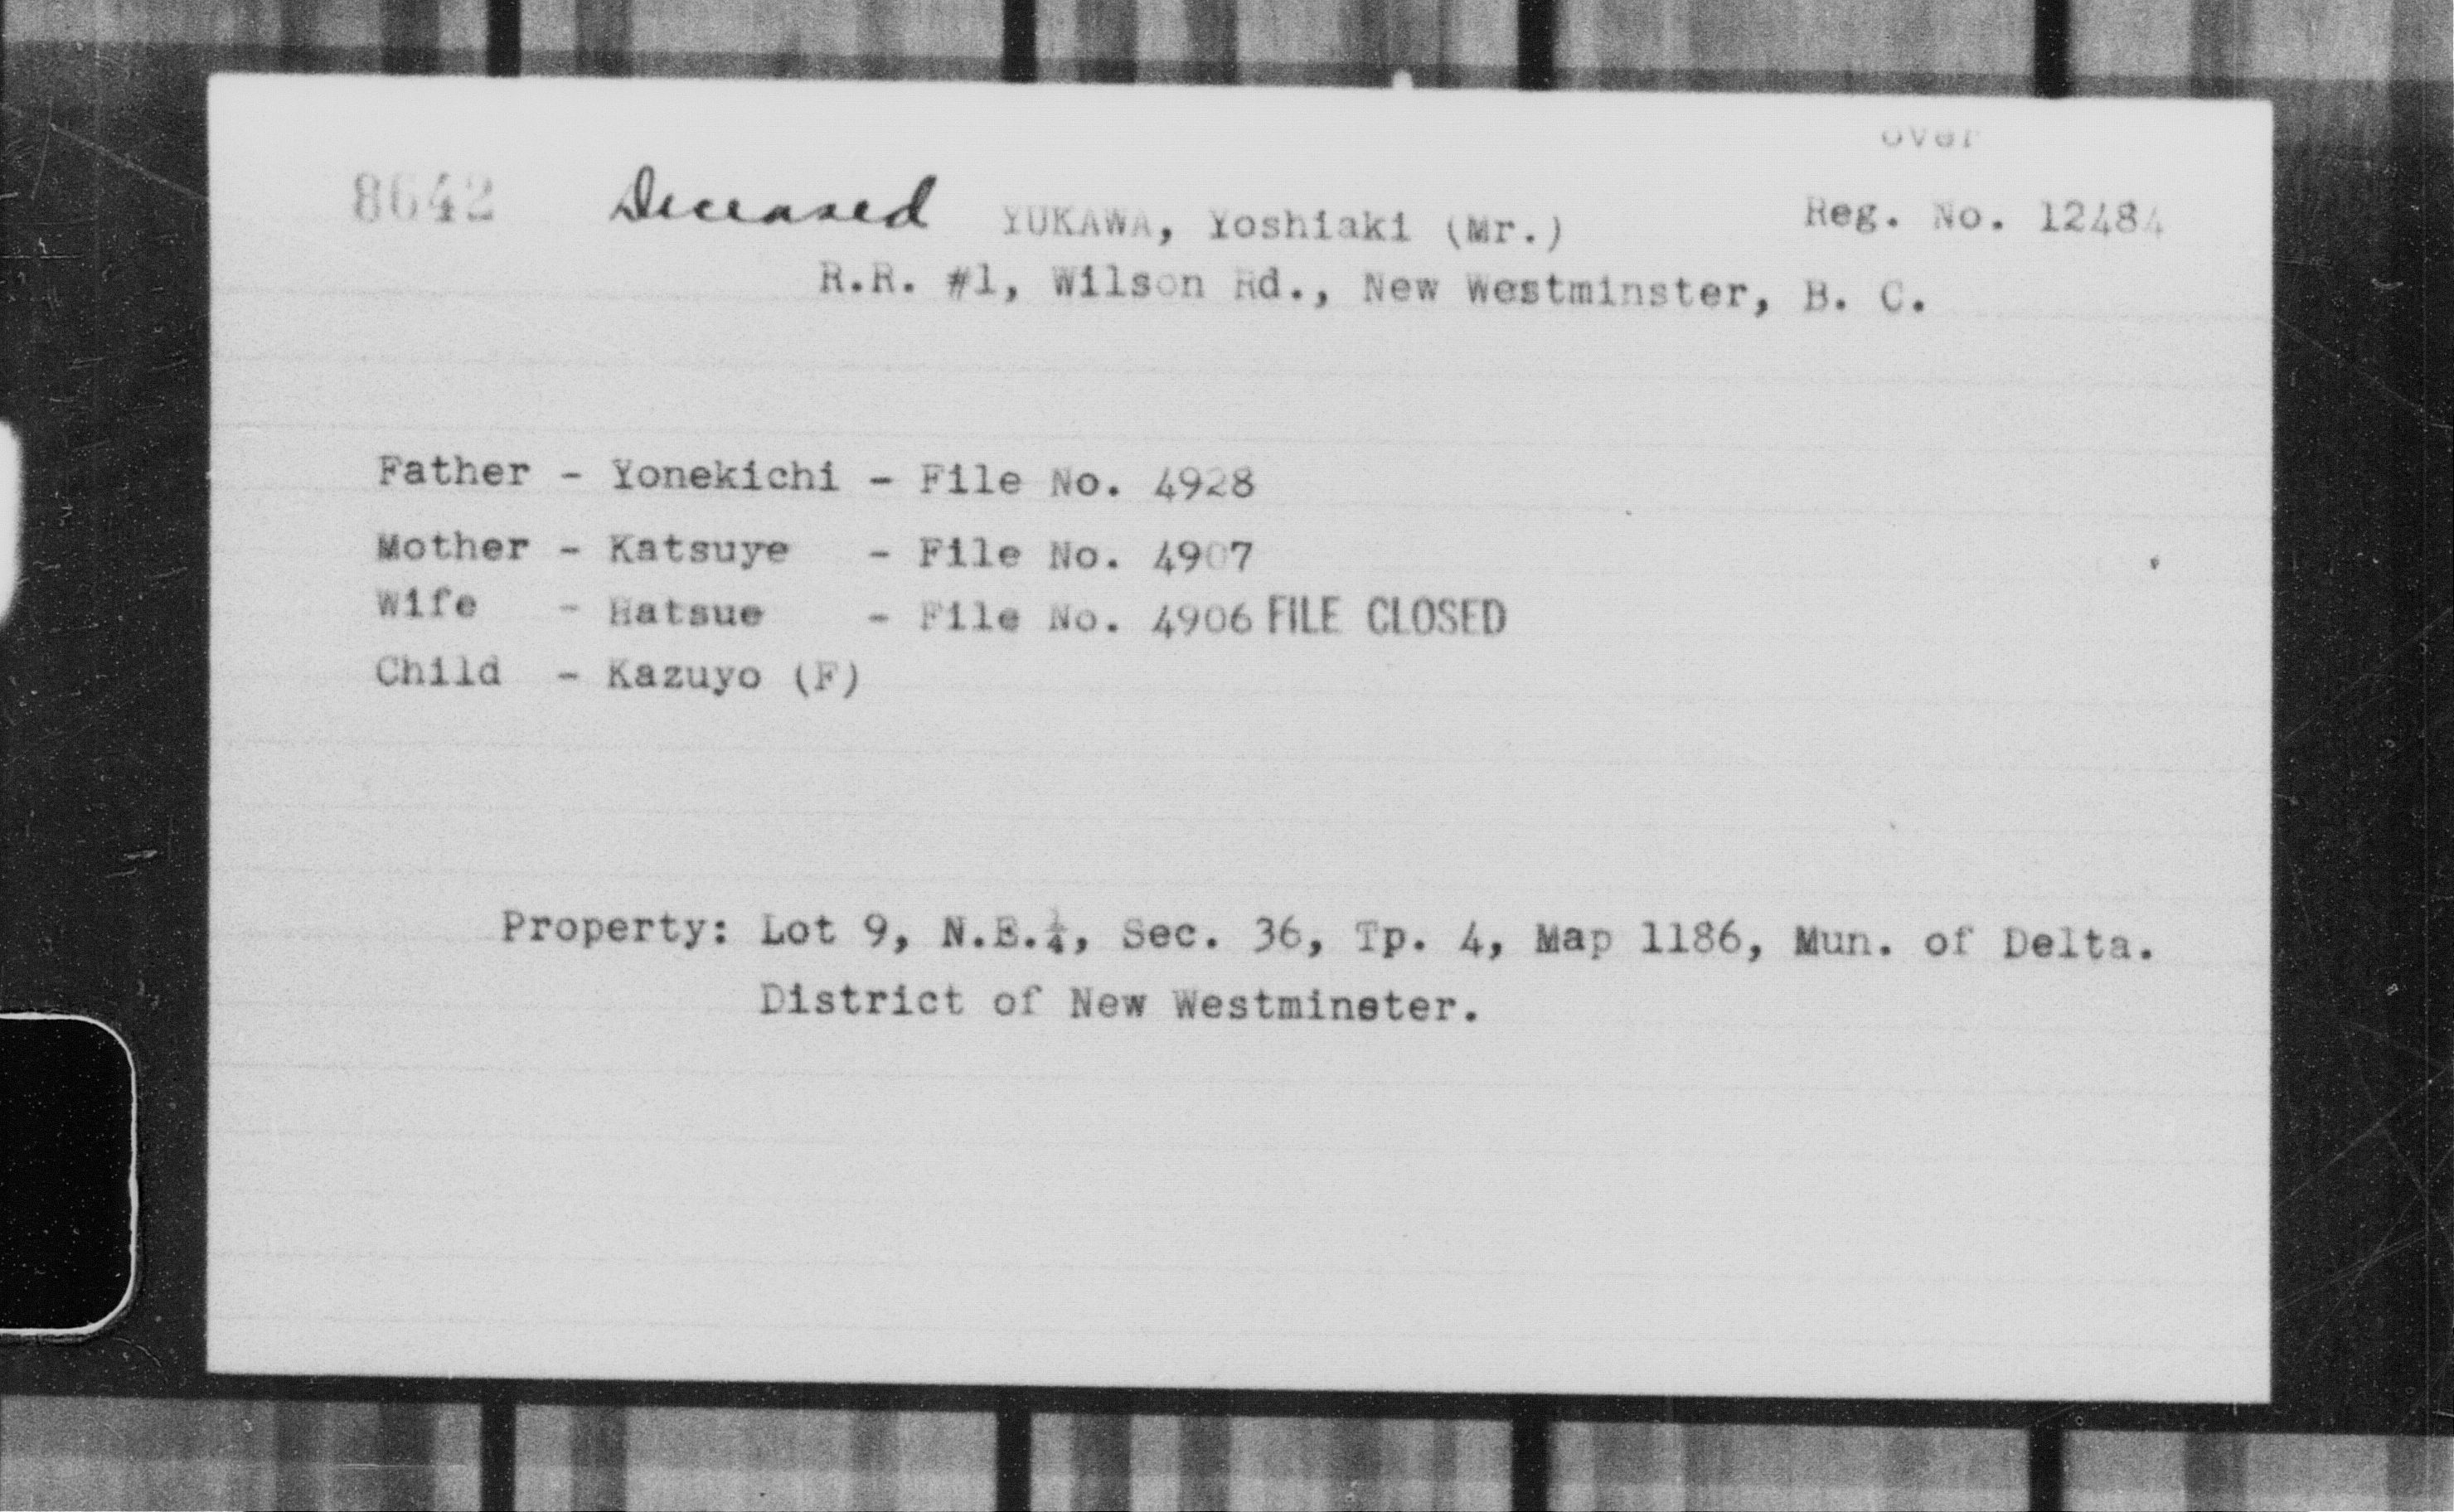 over
8642 Deceased YUKAWA, Yoshiaki (Mr.) Reg. No. 12484
R.R. #1, Wilson Rd., New Westminster, B. C.
Father - Yonekichi - File No. 4928
Mother - Katsuye - File No. 4907
Wife - Hatsue - File No. 4906 FILE CLOSED
Child - Kazuyo (F)
Property: Lot 9, N.E.¼, Sec. 36, Tp. 4, Map 1186, Mun. of Delta.
District of New Westminster.